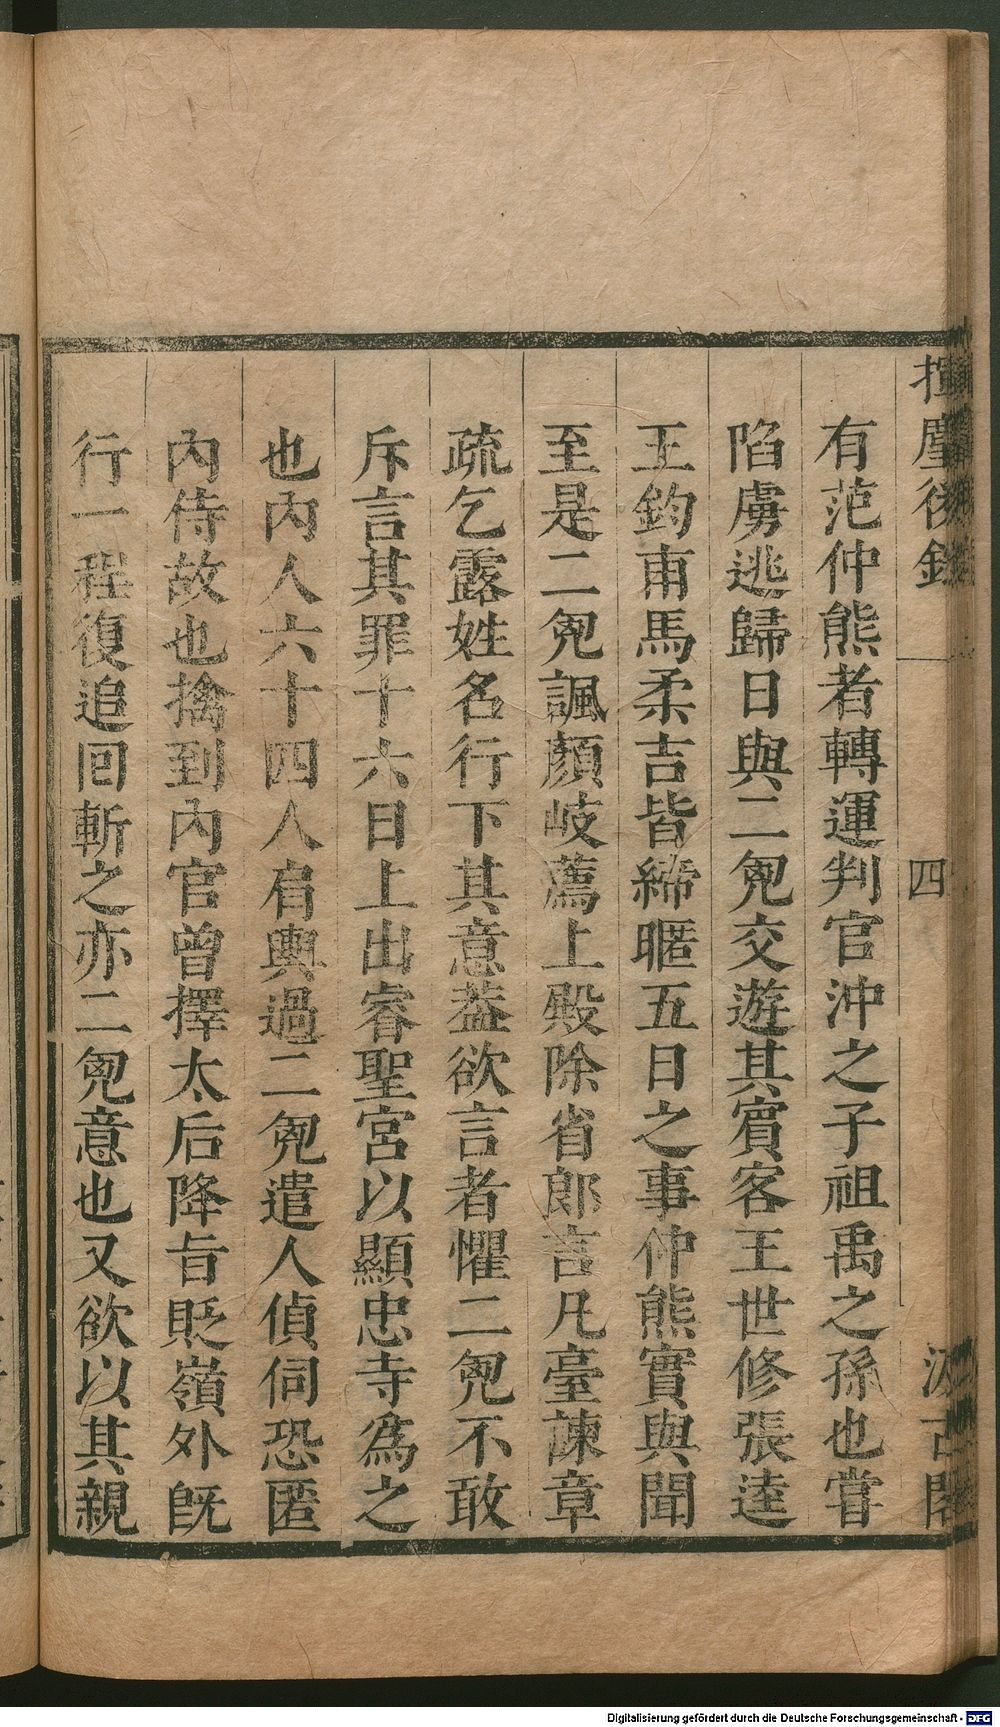 揮麈後錄
四
汲古閣
有范仲熊者轉運判官沖之子祖禹之孫也嘗
陷虜逃歸日與二兇交遊其賓客王世修張逵
王鈞甫馬柔吉皆締暱五日之事仲熊實與聞
至是二兇諷顏岐薦上殿除省郎言凡臺諫章
疏乞露姓名行下其意葢欲言者懼二兇不敢
斥言其罪十六日上出睿聖宮以顯忠寺爲之
也內人六十四人肩輿過二兇遣人偵伺恐匿
內侍故也擒到內官曾擇太后降旨貶嶺外旣
行一程復追回斬之亦二兇意也又欲以其親
Digitalisierung gefördert durch die Deutsche Forschungsgemeinschaft - DFG